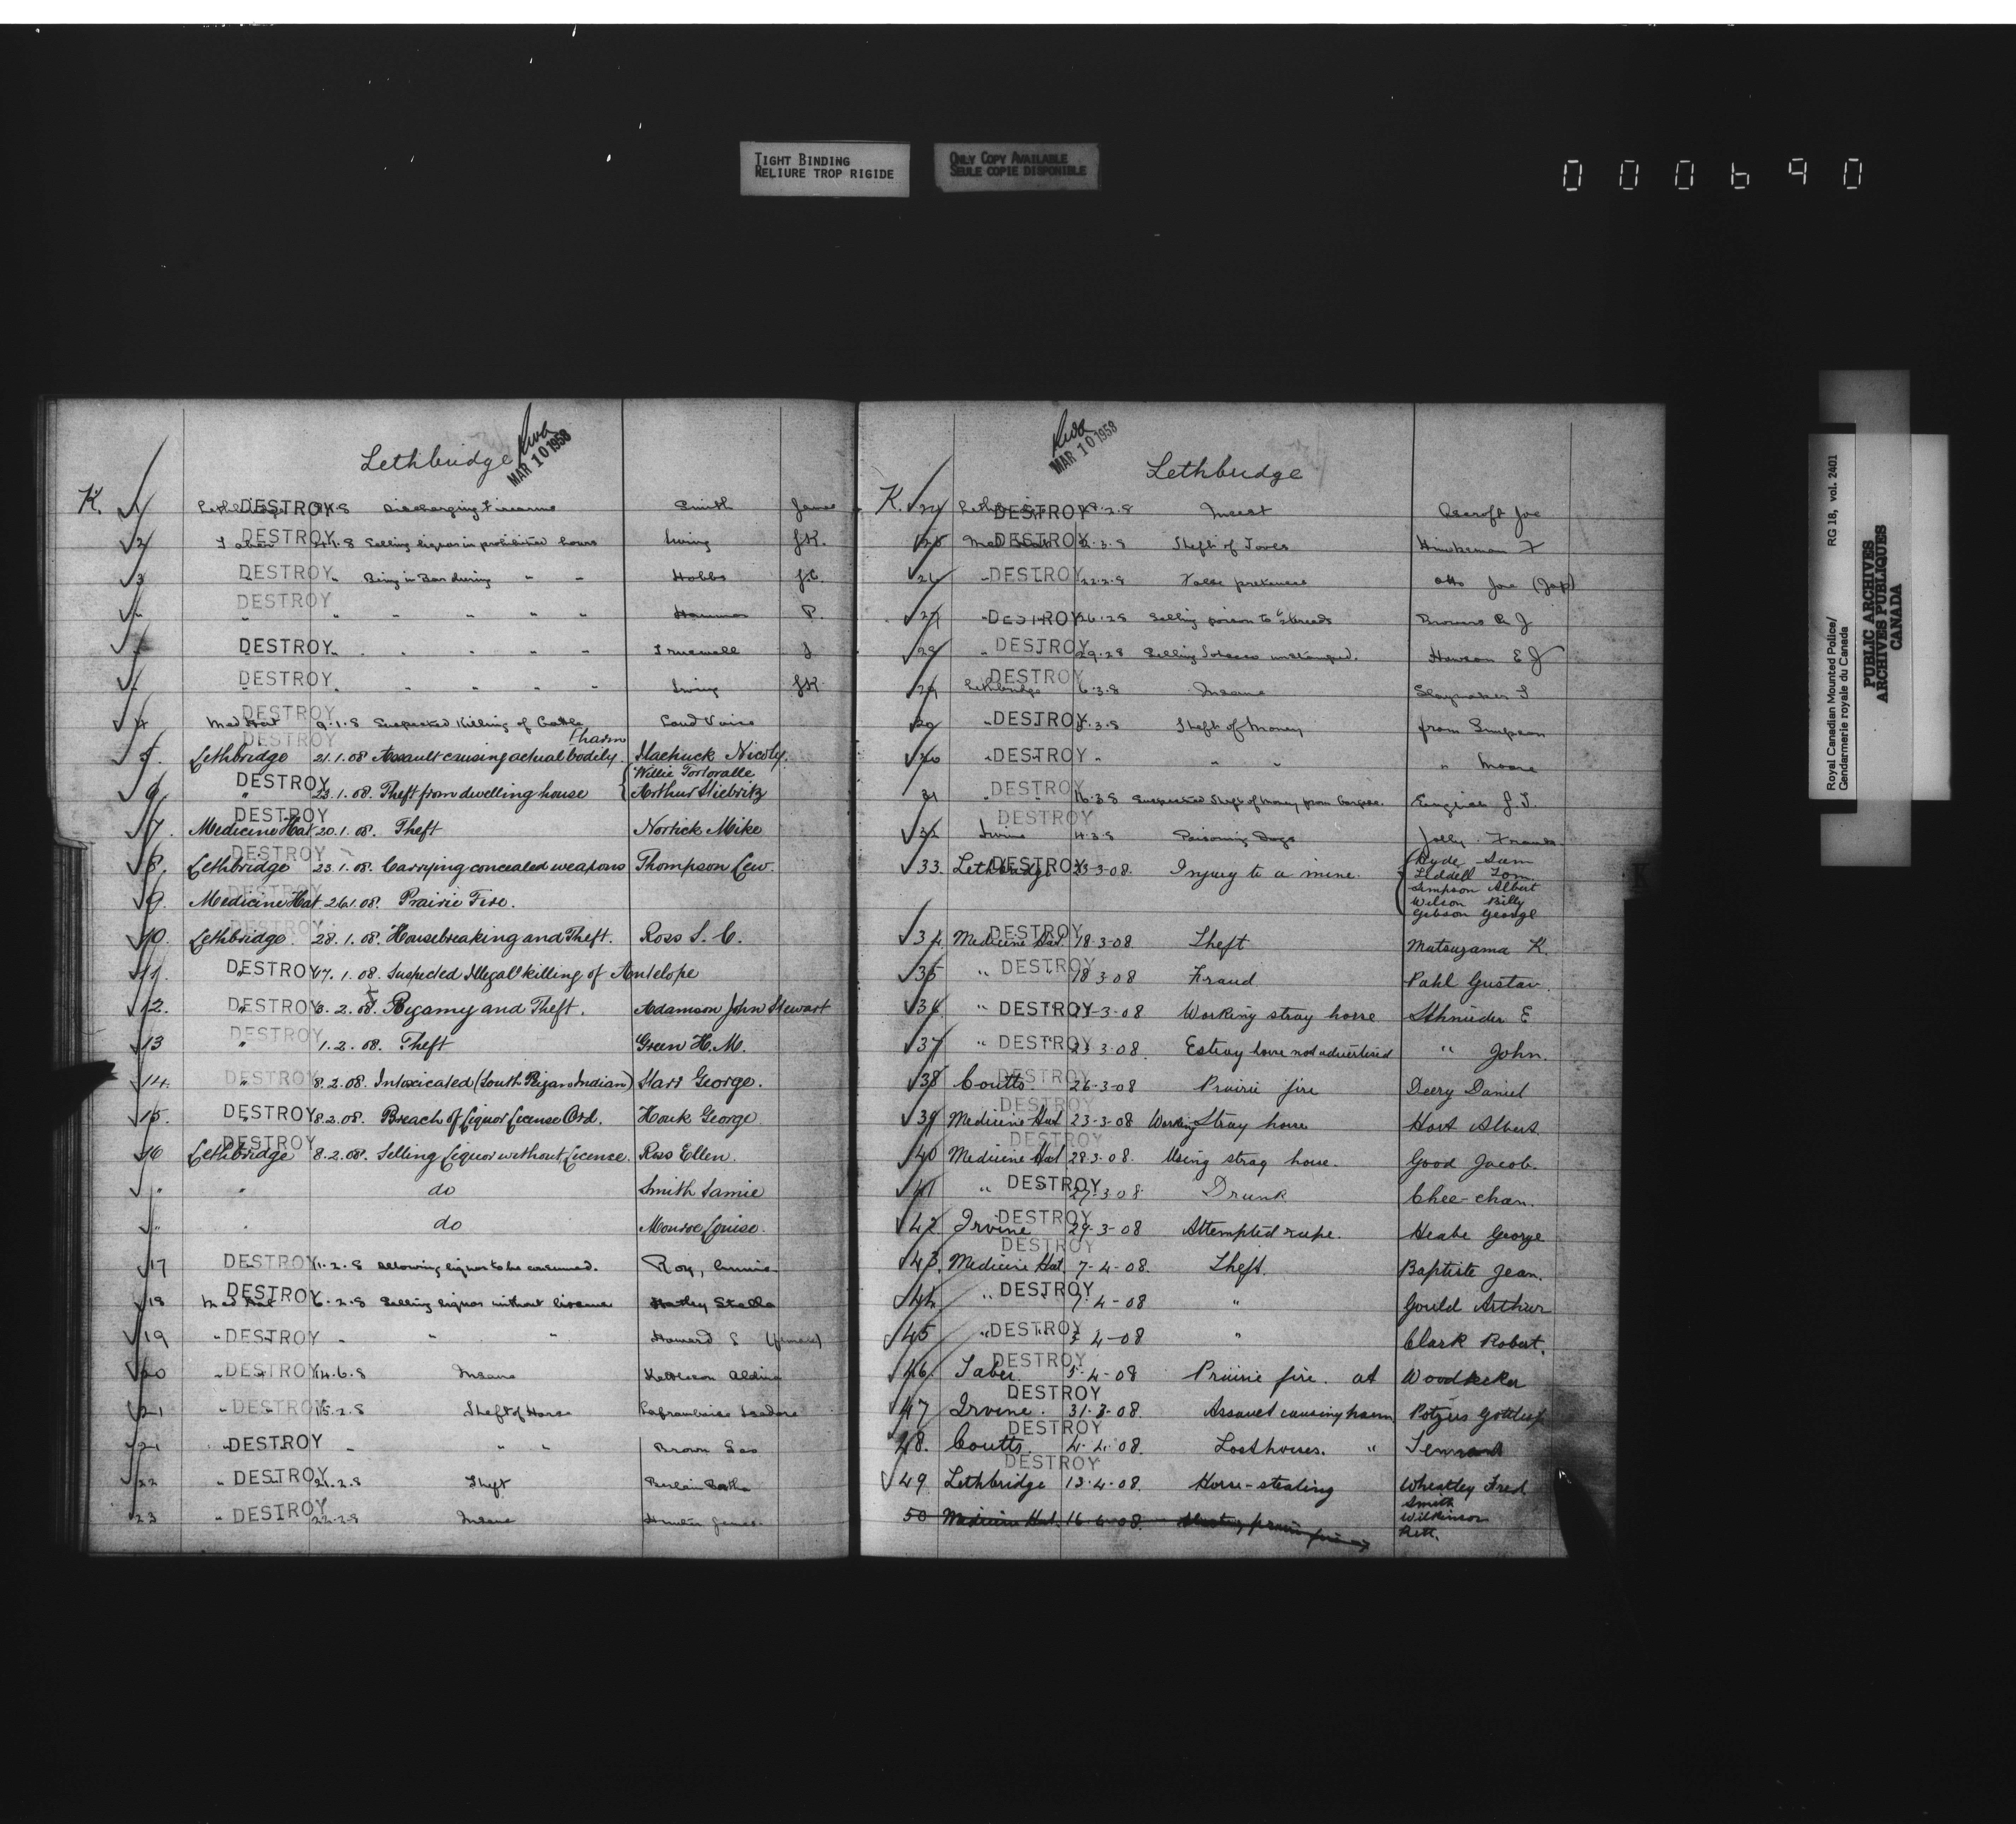 TIGHT BINDING
RELIURE TROP RIGIDE
ONLY COPY AVAILABLE
SEULE COPIE DISPONIBLE
000690
Lethbridge
MAR 10 1958
K. 1 DESTROY Discharging Firearms Smith James
2 Taber DESTROY Selling liquor in prohibited hours Irving J.K.
3 DESTROY " Being in Bar during " " Hobbs J.C.
" DESTROY " " " " " P.
" DESTROY " " " " " Truswell J
" DESTROY " " " " " Irving J.K.
4 Med Hat DESTROY 9.1.8 Suspected Killing of Cattle
5. Lethbridge DESTROY 21.1.08 Assault causing actual bodily harm Nicoly.
6 " DESTROY 23.1.08. Theft from dwelling house { Willie Tortoralle
Arthur Stiebritz
7. Medicine Hat DESTROY 20.1.08. Theft Nortick Mike
8. Lethbridge DESTROY 23.1.08. Carrying concealed weapons Thompson Lew.
9. Medicine Hat DESTROY 26.1.08. Prairie Fire.
10. Lethbridge DESTROY 28.1.08. Housebreaking and Theft. Ross S. C.
11. " DESTROY 17.1.08. Suspected Illegal killing of Antelope
12. " DESTROY 3.2.08. Bigamy and Theft. Adamson John Stewart
13 " DESTROY 1.2.08. Theft Green H.M.
14. " DESTROY 8.2.08. Intoxicated (South Peigan Indian) Starr George.
15. " DESTROY 8.2.08. Breach of Liquor License Ord. Houk George
16 Lethbridge DESTROY 8.2.08. Selling Liquor without License. Ross Ellen.
" " do Smith Jamie
" " do Monroe Louise.
17 DESTROY 1.2.8 allowing liquor to be consumed. Roy,
18 Med Hat DESTROY 6.2.8 Selling liquor without license Hatley Stella
19 " DESTROY " " " Howard S (female)
20 " DESTROY 14.6.8 Insane
21 " DESTROY 15.2.8 Theft of Horse Laframboise Isadore
21 DESTROY " " " Brown Geo
22 " DESTROY 21.2.8 Theft
23 " DESTROY 22.2.8 Insane Hunter James.
MAR 10 1958
Lethbridge
K. 24 DESTROY 18.2.8 Incest Ascroft Joe
25 Med Hat DESTROY 2.3.8 Theft of Tools
26 " DESTROY 22.2.8 False pretences Otto Joe (Jap)
27 " DESTROY 26.2.8 Selling poison to
28 " DESTROY 29.2.8 Selling Tobacco unstamped. Hanson E J
29 Lethbridge DESTROY 6.3.8 Insane Slaymaker
DESTROY 3.8 Theft of Money from Simpson
30 " DESTROY " " " " Moore
31 " DESTROY 16.3.8 Suspected theft of money from
32 Irvine 4.3.8 Poisoning Dogs Jolly. Frank
33. Lethbridge DESTROY 23-3-08. Injury to a mine. { Hyde Sam
Liddell Tom.
Simpson Albert
Wilson Billy
Gibson George
34. Medicine Hat DESTROY 18-3-08 Theft Matsuyama K.
35 " DESTROY 18 3 08 Fraud Pahl Gustav.
36 " DESTROY 21-3-08 Working stray horse Schnieder E
37 " DESTROY 23 3-08. Estray horse not advertised " John.
38 Coutts. DESTROY 26-3-08 Prairie fire Deery Daniel
39 Medicine Hat DESTROY 23-3-08 Working Stray horse Hart Albert.
40 Medicine Hat DESTROY 28.3-08. Using stray horse. Good Jacob.
41 " DESTROY 27-3-08 Drunk Chee-chan.
42 Irvine DESTROY 29-3-08 Attempted rape. Heabe George
43. Medicine Hat DESTROY 7-4-08. Theft. Baptiste Jean.
44 " DESTROY 7-4-08 " Gould Arthur
45 " DESTROY 3 4-08 " Clark Robert.
46. Taber. DESTROY 5-4-08 Prairie fire. at Woodpecker
47 Irvine. DESTROY 31-3-08. Assault causing harm
48. Coutts. DESTROY 4-4-08. Lost horses. "
49. Lethbridge DESTROY 13-4-08. Horse-stealing Wheatley Fred
50 Medicine Hat. 16-4-08. prairie fire Smith
Wilkinson
Royal Canadian Mounted Police/
Gendarmerie royale du Canada
RG 18, vol. 2401
PUBLIC ARCHIVES
ARCHIVES PUBLIQUES
CANADA